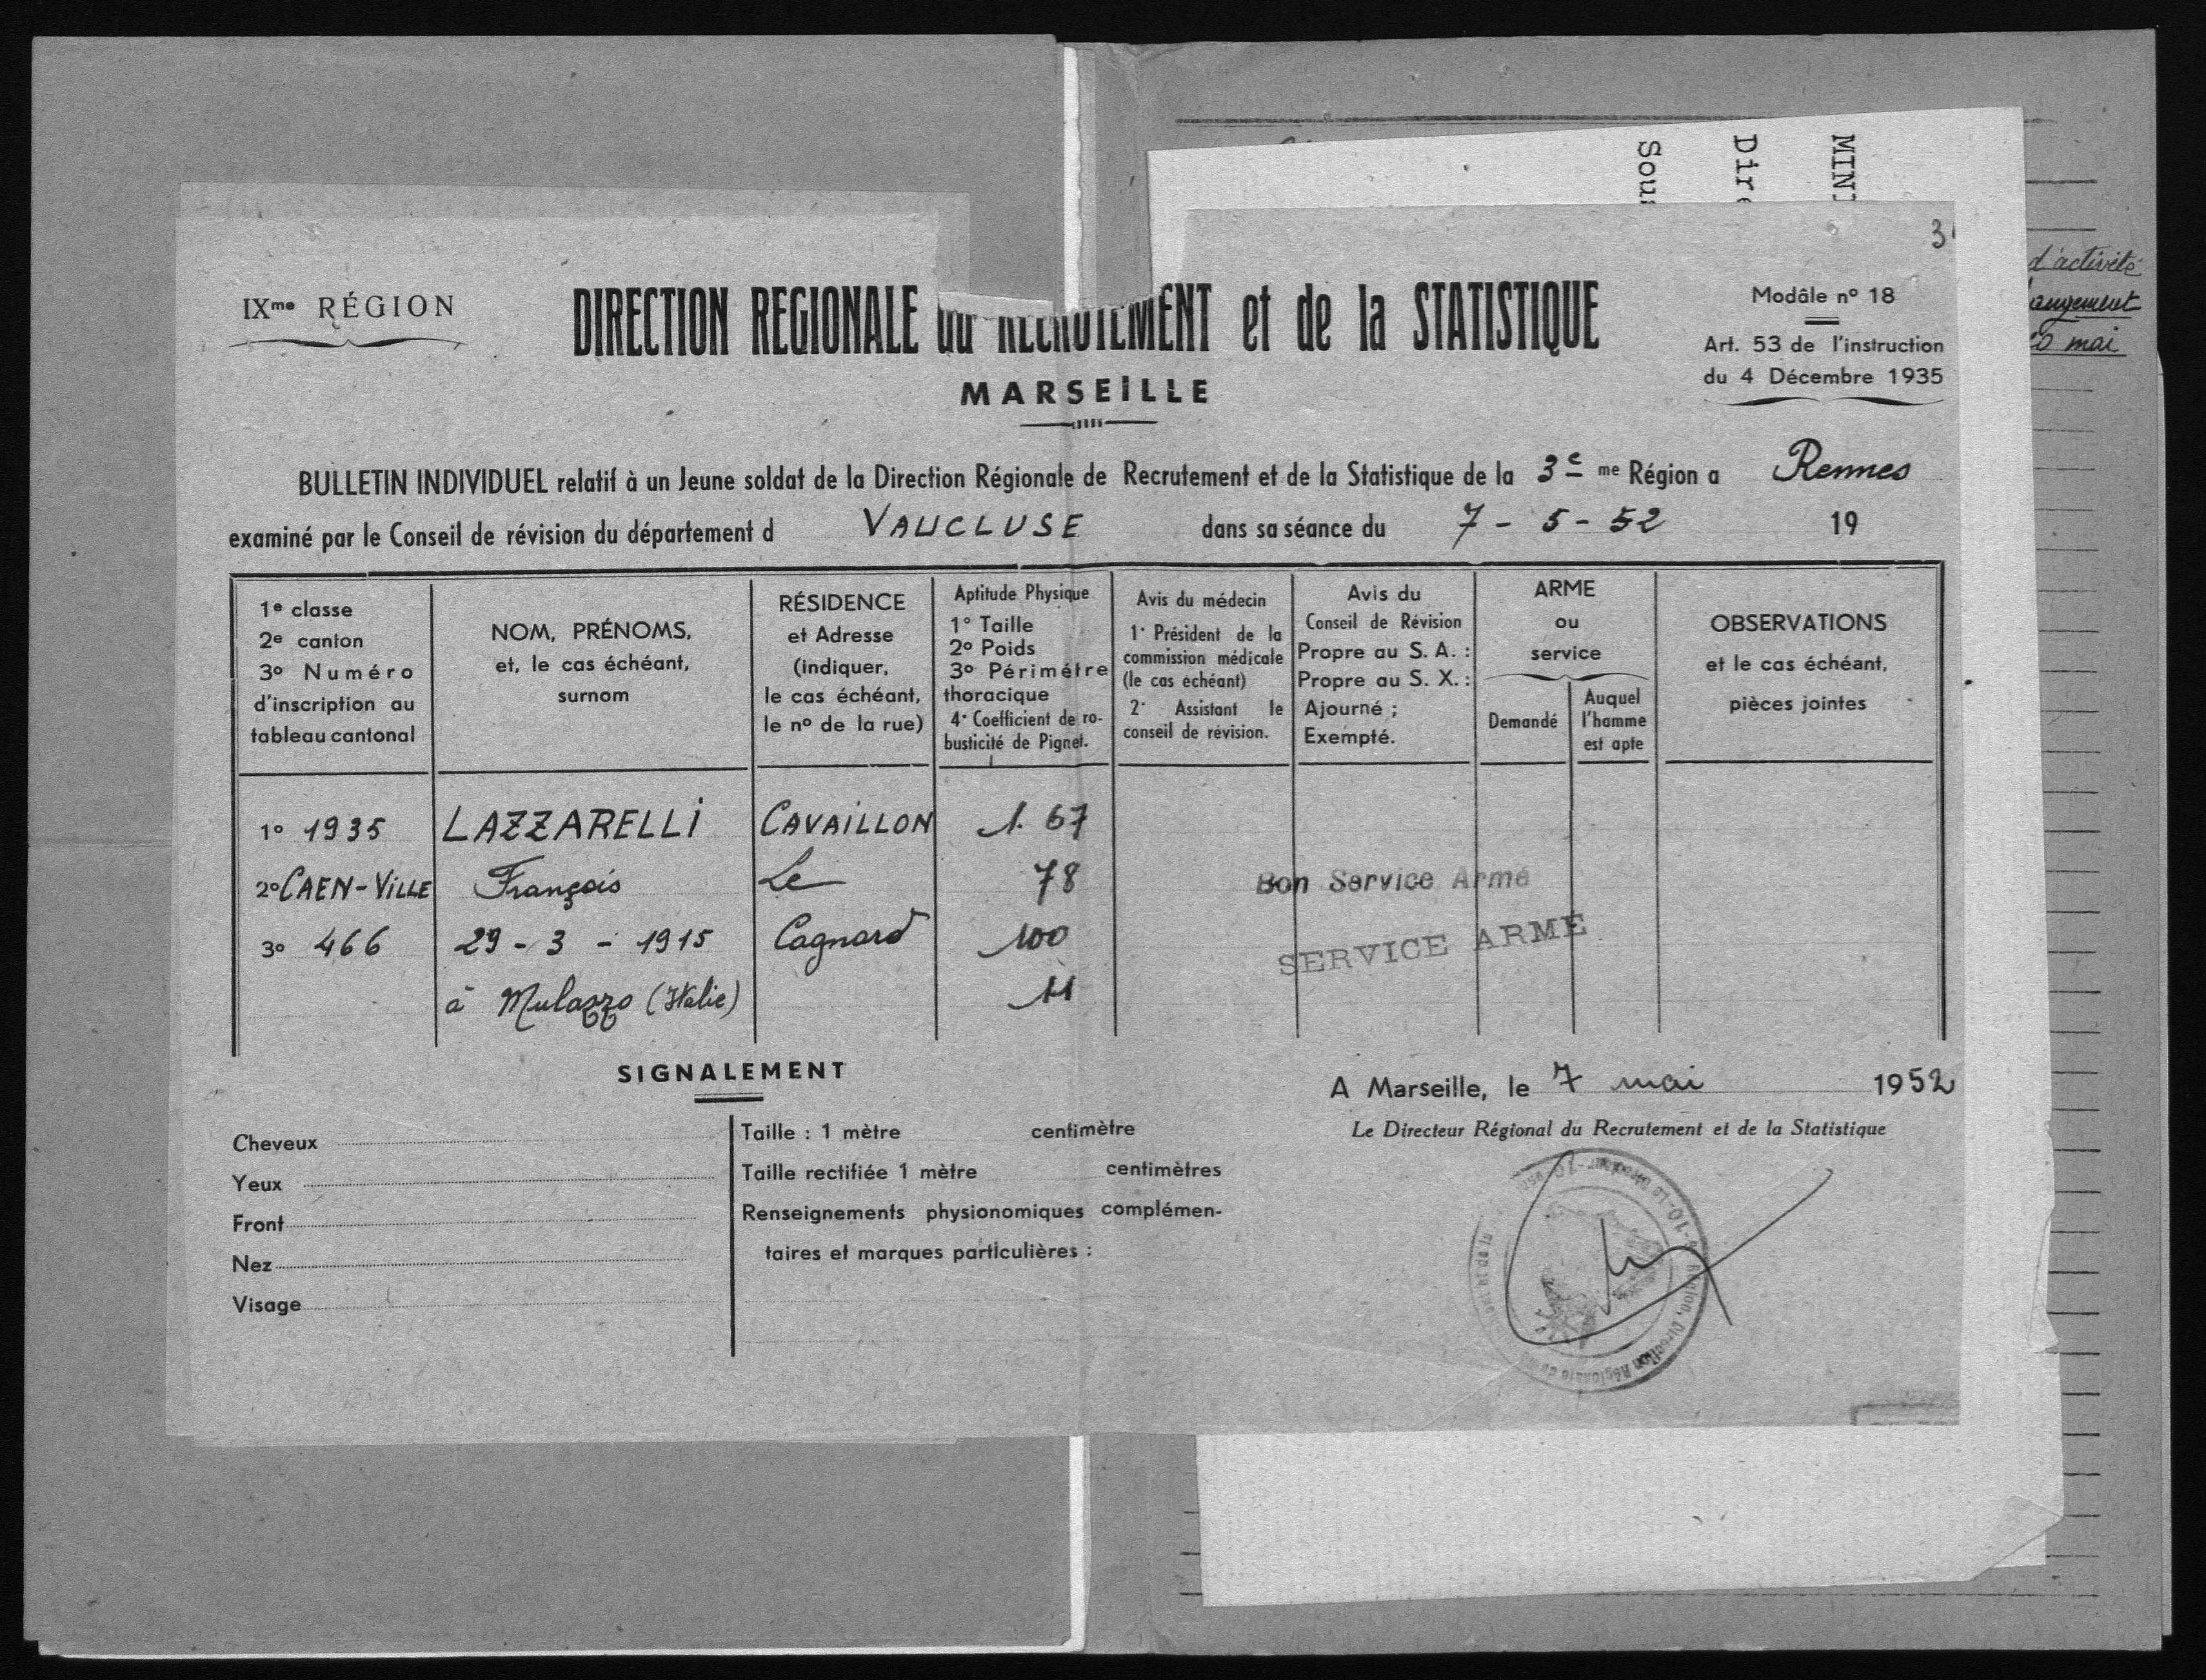 MIN
Dir
Sou
3
d'activité
angement
mai
IXme RÉGION
DIRECTION REGIONALE du RECRUTEMENT et de la STATISTIQUE
MARSEILLE
Modâle nº 18
Art. 53 de l'instruction
du 4 Décembre 1935
BULLETIN INDIVIDUEL relatif à un Jeune soldat de la Direction Régionale de Recrutement et de la Statistique de la 3e me Région a Rennes
examiné par le Conseil de révision du département d VAUCLUSE dans sa séance du 7 - 5 - 52 19
1e classe
2e canton
3º Numéro
d'inscription au
tableau cantonal
NOM, PRÉNOMS,
et, le cas échéant,
surnom
RÉSIDENCE
et Adresse
(indiquer,
le cas échéant,
le nº de la rue)
Aptitude Physique
1° Taille
2º Poids
3º Périmétre
thoracique
4° Coefficient de ro-
busticité de Pignet.
Avis du médecin
1° Président de la
commission médicale
(le cas echéant)
2° Assistant le
conseil de révision.
Avis du
Conseil de Révision
Propre au S. A. :
Propre au S. X. :
Ajourné ;
Exempté.
ARME
ou
service
Demandé
Auquel
l'hamme
est apte
OBSERVATIONS
et le cas échéant,
pièces jointes
1º 1935 LAZZARELLI CAVAILLON 1. 67
2º CAEN-VILLE François Le 78
Bon Service Armé
3º 466 29 - 3 - 1915 Cagnard 100
SERVICE ARME
à Mulazzo (Italie) 11
SIGNALEMENT
Cheveux
Yeux
Front
Nez
Visage
Taille : 1 mètre centimètre
Taille rectifiée 1 mètre centimètres
Renseignements physionomiques complémen-
taires et marques particulières :
A Marseille, le 7 mai 1952
Le Directeur Régional du Recrutement et de la Statistique